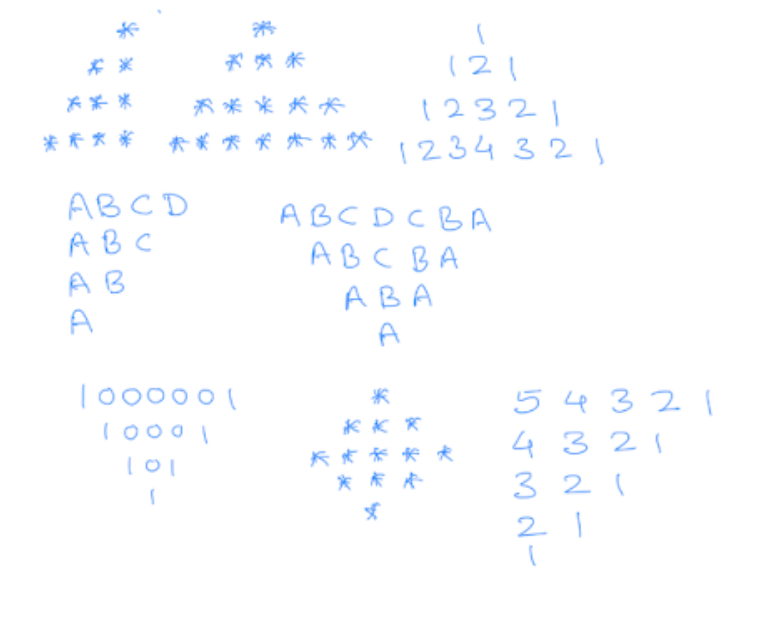 *
* *
* * *
* * * *
*
* * *
* * * * *
* * * * * * *
1
1 2 1
1 2 3 2 1
1 2 3 4 3 2 1
A B C D
A B C
A B
A
A B C D C B A
A B C B A
A B A
A
1 0 0 0 0 0 1
1 0 0 0 1
1 0 1
1
*
* * *
* * * * *
* * *
*
5 4 3 2 1
4 3 2 1
3 2 1
2 1
1